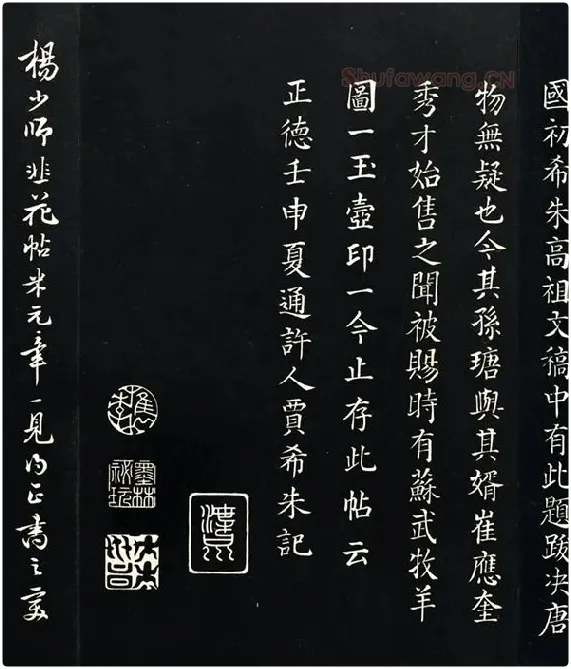 國初希朱高祖文稿中有此題跋决唐
物無疑也今其孫瑭與其婿崔應奎
秀才始售之聞被賜時有蘇武牧羊
圖一玉壺印一今止存此帖云
正德壬申夏通許人賈希朱記
樵李
墨林秘玩
楊少師韭花帖米元章一見為正書之變
Shufawang.CN